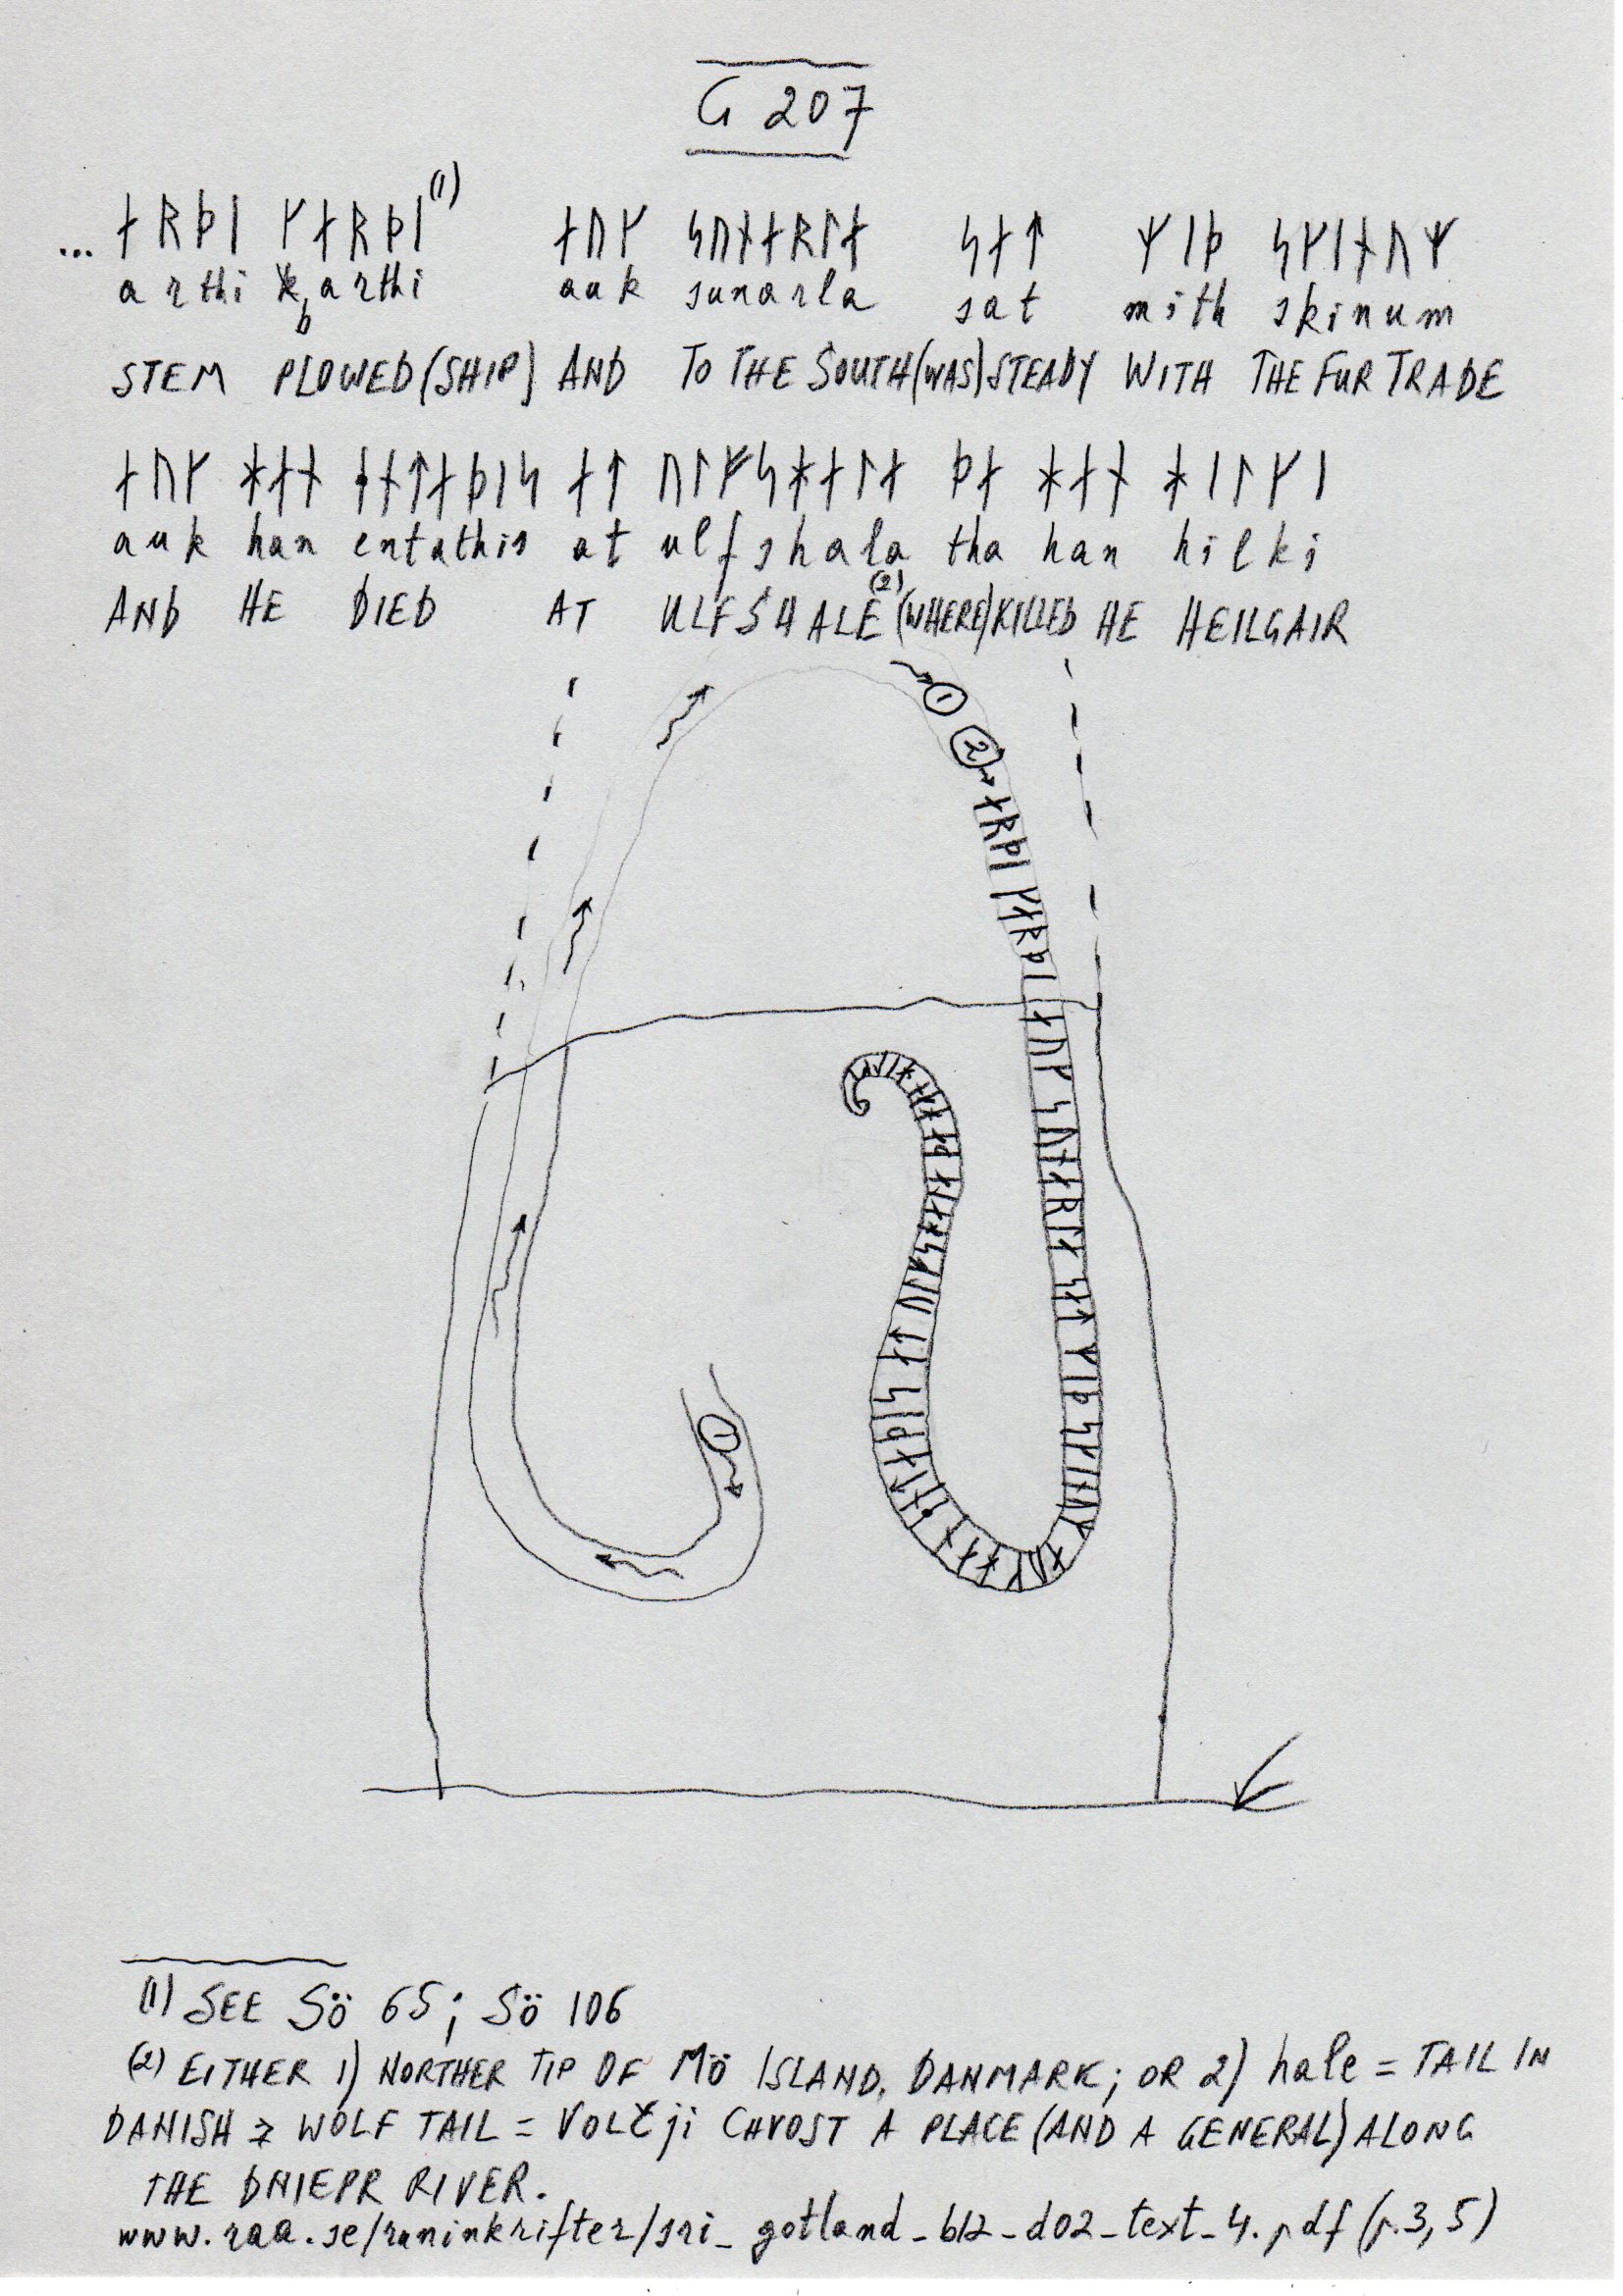 G 207
... ᛅᚱᚦᛁ ᚴᛅᚱᚦᛁ (1) ᛅᚢᚴ ᛋᚢᚾᛅᚱᛚᛅ ᛋᛅᛏ ᛘᛁᚦ ᛋᚴᛁᚾᚢᛘ
arthi karthi auk sunarla sat mith skinum
b
STEM PLOWED (SHIP) AND TO THE SOUTH (WAS) STEADY WITH THE FUR TRADE
ᛅᚢᚴ ᚼᛅᚾ ᛂᚾᛏᛅᚦᛁᛋ ᛅᛏ ᚢᛚᚠᛋᚼᛅᛚᛅ ᚦᛅ ᚼᛅᚾ ᚼᛁᛚᚴᛁ
auk han entathis at ulfshala tha han hilki
AND HE DIED AT ULFSHALE (2) (WHERE) KILLED HE HEILGAIR
1
2
ᛅᚱᚦᛁ ᚴᛅᚱᚦᛁ ᛅᚢᚴ ᛋᚢᚾᛅᚱᛚᛅ ᛋᛅᛏ ᛘᛁᚦ ᛋᚴᛁᚾᚢᛘ ᛅᚢᚴ ᚼᛅᚾ ᛂᚾᛏᛅᚦᛁᛋ ᛅᛏ ᚢᛚᚠᛋᚼᛅᛚᛅ ᚦᛅ ᚼᛅᚾ ᚼᛁᛚᚴᛁ
1
(1) SEE Sö 65; Sö 106
(2) EITHER 1) NORTHER TIP OF Mö ISLAND, DANMARK; OR 2) hale = TAIL IN
DANISH ⇒ WOLF TAIL = VOLČji CHVOST A PLACE (AND A GENERAL) ALONG
THE DNIEPR RIVER.
www.raa.se/runinkrifter/sri_gotland_b12_d02_text_4.pdf (p.3,5)